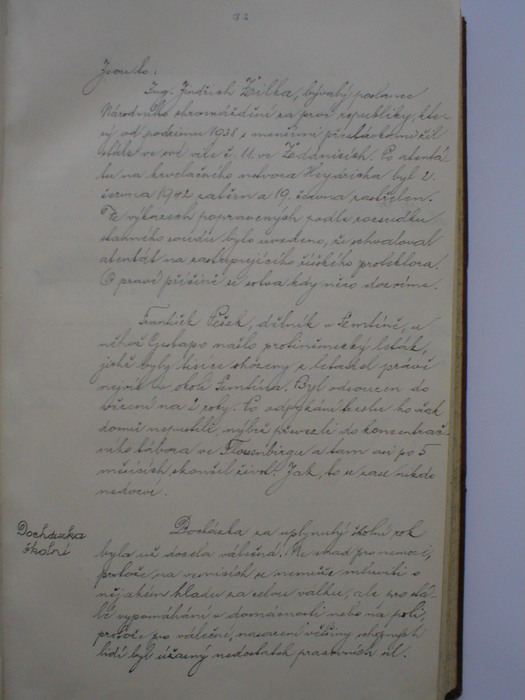 33
Jsou to:
Ing. Jindřich Žilka, bývalý poslanec
Národního shromáždění za prvé republiky, kte-
rý od podzimu 1938 s menšími přestávkami žil
stále ve své vile č. 11. ve Zdanicích. Po atentá-
tu na krvelačného netvora Heydricha byl 2.
června 1942 zatčen a 19. června zastřelen.
Ve výkazech popravených podle rozsudku
stanného soudu bylo uvedeno, že schvaloval
atentát na zastupujícího říšského protektora.
O pravé příčině se sotva kdy něco dozvíme.
František Pešek, dělník v Semtíně, u
něhož Gestapo našlo protiněmecký leták,
jichž byly tisíce shozeny z letadel právě
nejvíc v okolí Semtína. Byl odsouzen do
vězení na 2 roky. Po odpykání trestu ho však
domů nepustili, nýbrž převezli do koncentrač-
ního tábora ve Flossenbirgu a tam asi po 5
měsících skončil život. Jak, to se zase nikdo
nedozví.
Docházka
školní
Docházka za uplynulý školní rok
byla už docela válečná. Ne snad pro nemoci,
protože na vesnicích se nemůže mluviti o
nějakém hladu za celou válku, ale pro stá-
lé vypomáhání v domácnosti nebo na poli,
protože pro válečné nasazení většiny schopných
lidí byl úžasný nedostatek pracovních sil.